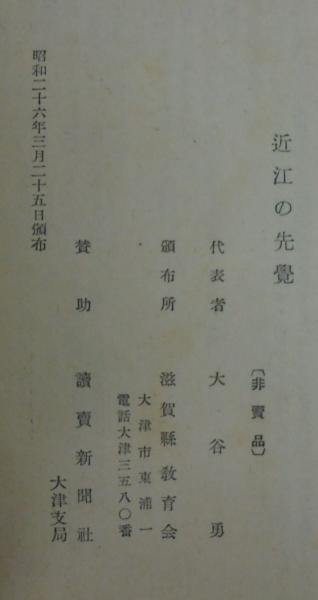 近江の先覺
〔非賣品〕
代表者 大谷勇
頒布所 滋賀縣敎育会
大津市東浦一
電話大津三五八〇番
賛助 讀賣新聞社
大津支局
昭和二十六年三月二十五日頒布